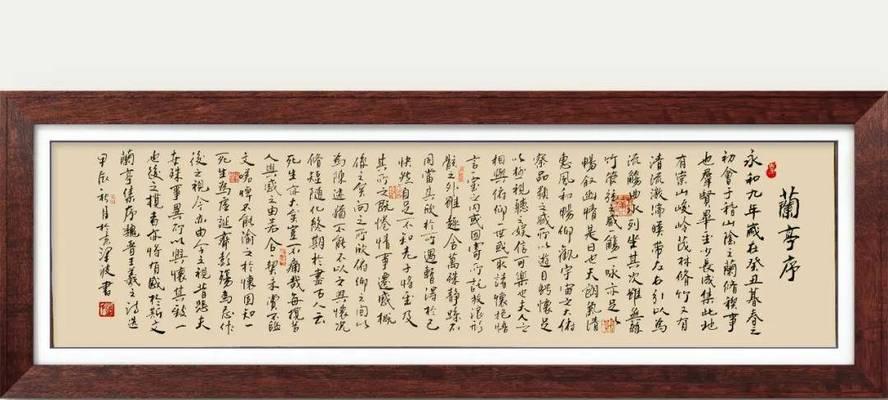 蘭亭序
永和九年歲在癸丑暮春之
初會于稽山陰之蘭脩稧事
也羣賢畢至少長咸集此地
有崇山峻岭茂林脩竹又有
清流激湍暎帶左右引以為
流觴曲水列坐其次雖無絲
竹管弦之盛一觴一咏亦足以
暢叙幽情是日也天朗氣清
惠風和暢仰觀宇宙之大俯
察品類之盛所以遊目騁懷足
以極視聽之娛信可樂也夫人之
相與俯仰一世或取諸懷抱悟
言一室之内或因寄所託放浪形
骸之外雖趣舍萬殊静躁不
同當其欣於所遇暫得於己
快然自足不知老之將至及
其所之既惓情事遷感概
係之矣向之所欣俯仰之间以
為陳迹猶不能不以之興懷况
脩短隨化終期於盡古人云
死生亦大矣豈不痛哉每攬昔
人興感之由若合一契未嘗不臨
文嗟悼不能喻之於懷固知一
死生為虚誕齊彭殤為妄作
後之視今亦由今之視昔悲夫
世殊事異所以興懷其致一
也後之攬者亦將有感於斯文
蘭亭集序魏晉王羲之詩選
甲辰秋月於京波書